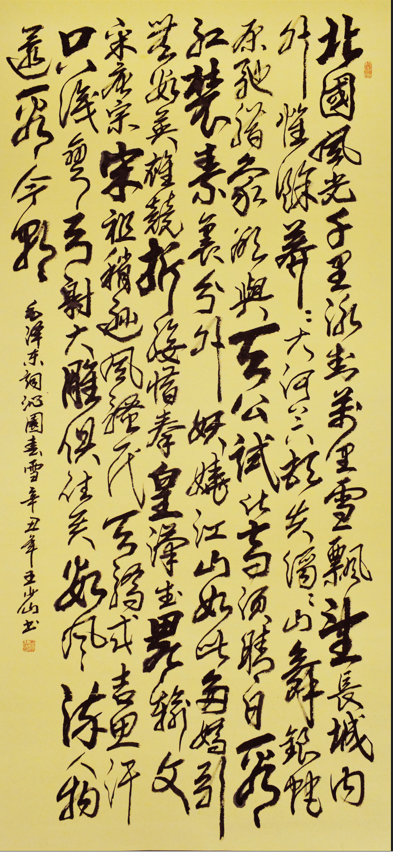 北國風光千里冰封萬里雪飄望長城内
外惟餘莽々大河上下頓失滔々山舞銀蛇
原馳蜡象欲與天公試比高須晴日看
紅裝素裹分外妖嬈江山如此多嬌引
無數英雄競折腰惜秦皇漢武略輸文
采唐宗宋祖稍遜風騷一代天驕成吉思汗
只識彎弓射大雕俱往矣數風流人物
還看今朝
毛澤东詞沁園春雪辛丑年王少山书